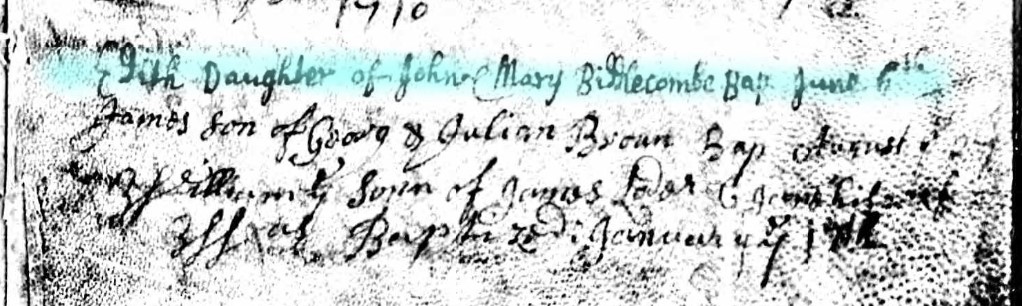 1710
Edith Daughter of John & Mary Bidlecombe Bap June 6th
James Son of Georg & Julian Broun Bap August
William Sonn of James Loder &
Was Baptized January